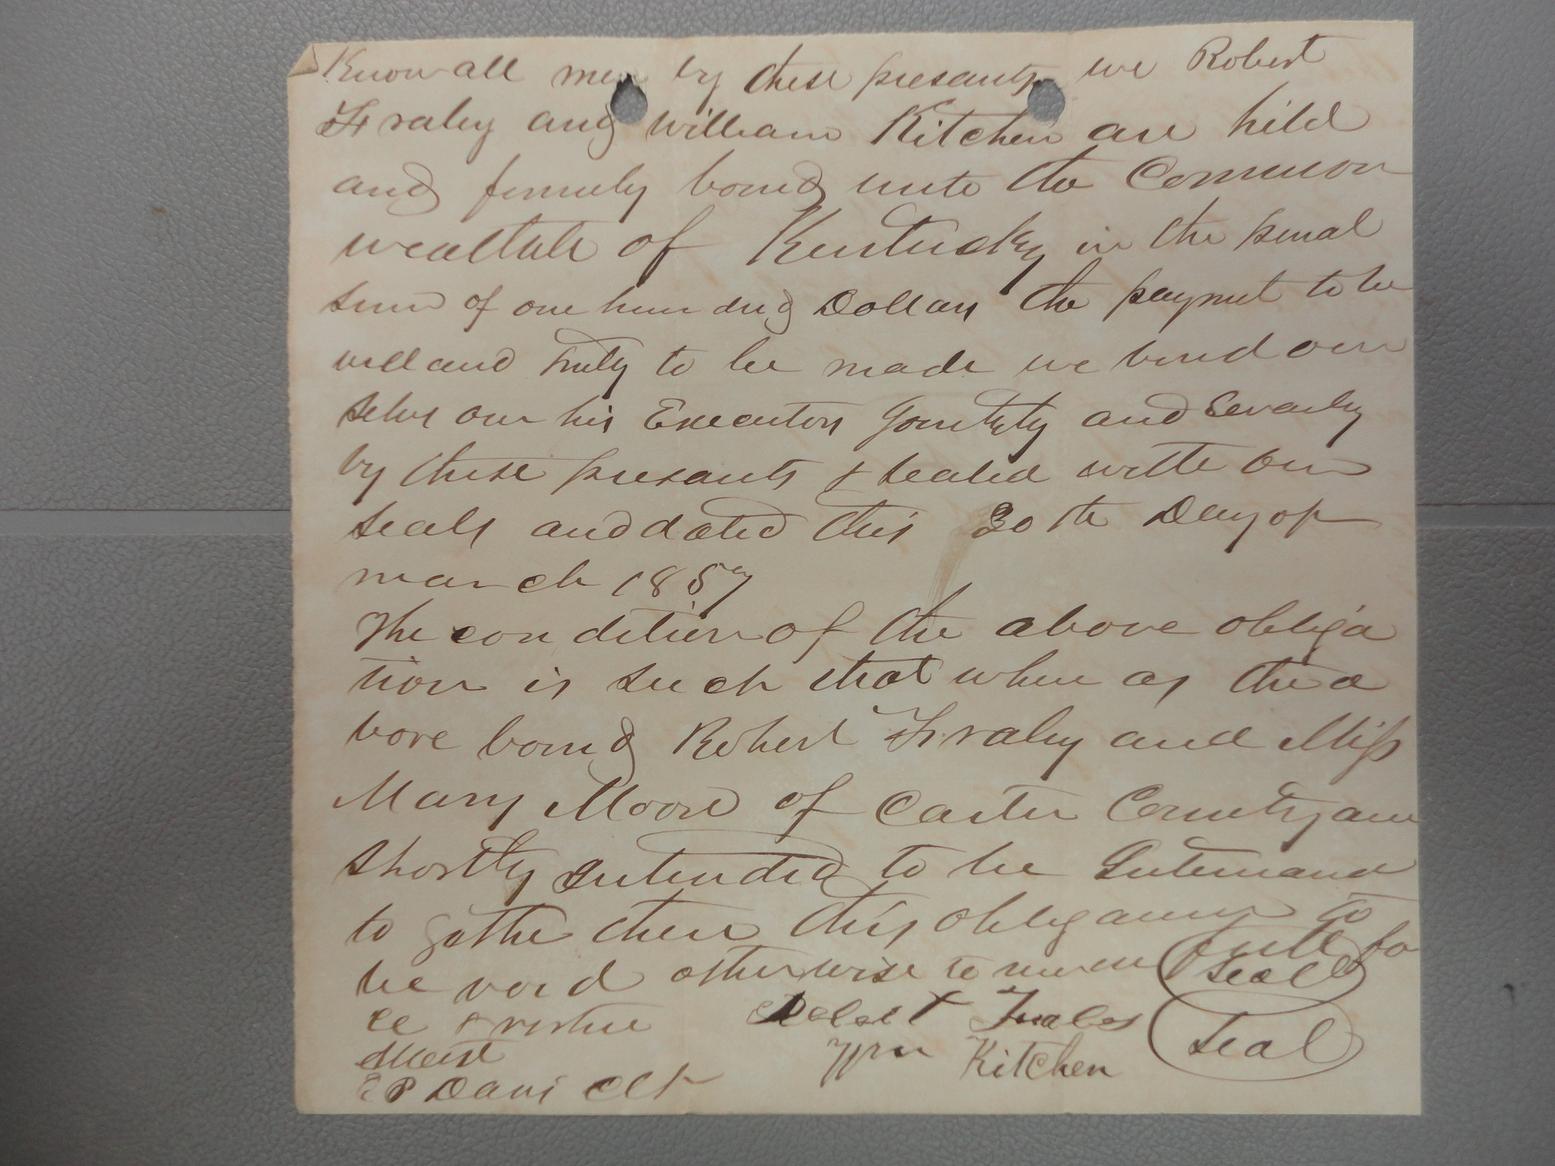 Know all men by these presants we Robert
Fraley and William Kitchen are hild
and firmely bound unto the Common
wealtah of Kentucky in the penal
sum of one hundrid Dollars the paymet to be
well and truly to be made we bind our
selvs our his Executors Jointity and Severaly
by these presants & sealed witte our
seals and dated this 30th Day of
march 1857
The condition of the above obliga
tion is such that where as the a
bove bound Robert Fraley and Miss
Mary Moore of Carter County are
shortly intended to be Intermand
to gether then this obligauny to
be void otherwise to remain full fo
ce & virtue Robert Fraley Seal
Attest Wm Kitchen Seal
E P Davis Clk